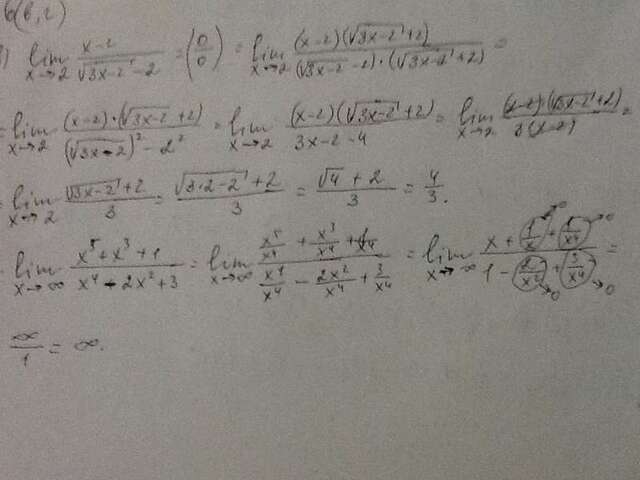 6(в,г)
) lim x→2 (x-2)/(√(3x-2) - 2) = (0/0) = lim x→2 ((x-2)(√(3x-2)+2))/((√(3x-2) - 2)·(√(3x-2)+2)) =
= lim x→2 ((x-2)·(√(3x-2)+2))/((√(3x-2))² - 2²) = lim x→2 ((x-2)(√(3x-2)+2))/(3x-2-4) = lim x→2 ((x-2)(√(3x-2)+2))/(3(x-2)) =
= lim x→2 (√(3x-2)+2)/3 = (√(3·2-2)+2)/3 = (√4+2)/3 = 4/3.
lim x→∞ (x⁵+x³+1)/(x⁴-2x²+3) = lim x→∞ (x⁵/x⁴ + x³/x⁴ + 1/x⁴)/(x⁴/x⁴ - 2x²/x⁴ + 3/x⁴) = lim x→∞ (x + 1/x→0 + 1/x⁴→0)/(1 - 2/x²→0 + 3/x⁴→0) =
∞/1 = ∞.